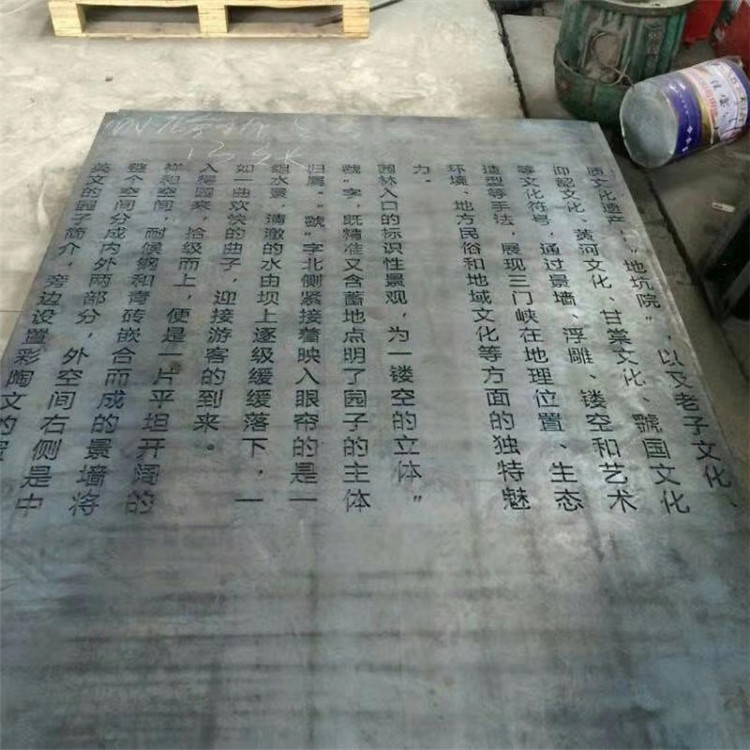 质文化遗产，“地坑院”，以及老子文化、
仰韶文化、黄河文化、甘棠文化、虢国文化
等文化符号，通过景墙、浮雕、镂空和艺术
造型等手法，展现三门峡在地理位置、生态
环境、地方民俗和地域文化等方面的独特魅
力。
园林入口的标识性景观，为一镂空的立体“
虢”字，既精准又含蓄地点明了园子的主体
归属。“虢”字北侧紧接着映入眼帘的是一
组水景，清澈的水由坝上逐级缓缓落下，一
如一曲欢快的曲子，迎接游客的到来。
入得园来，拾级而上，便是一片平坦开阔的
祥和空间，耐候钢和青砖嵌合而成的景墙将
整个空间分成内外两部分，外空间右侧是中
英文的园子简介，旁边设置彩陶文的